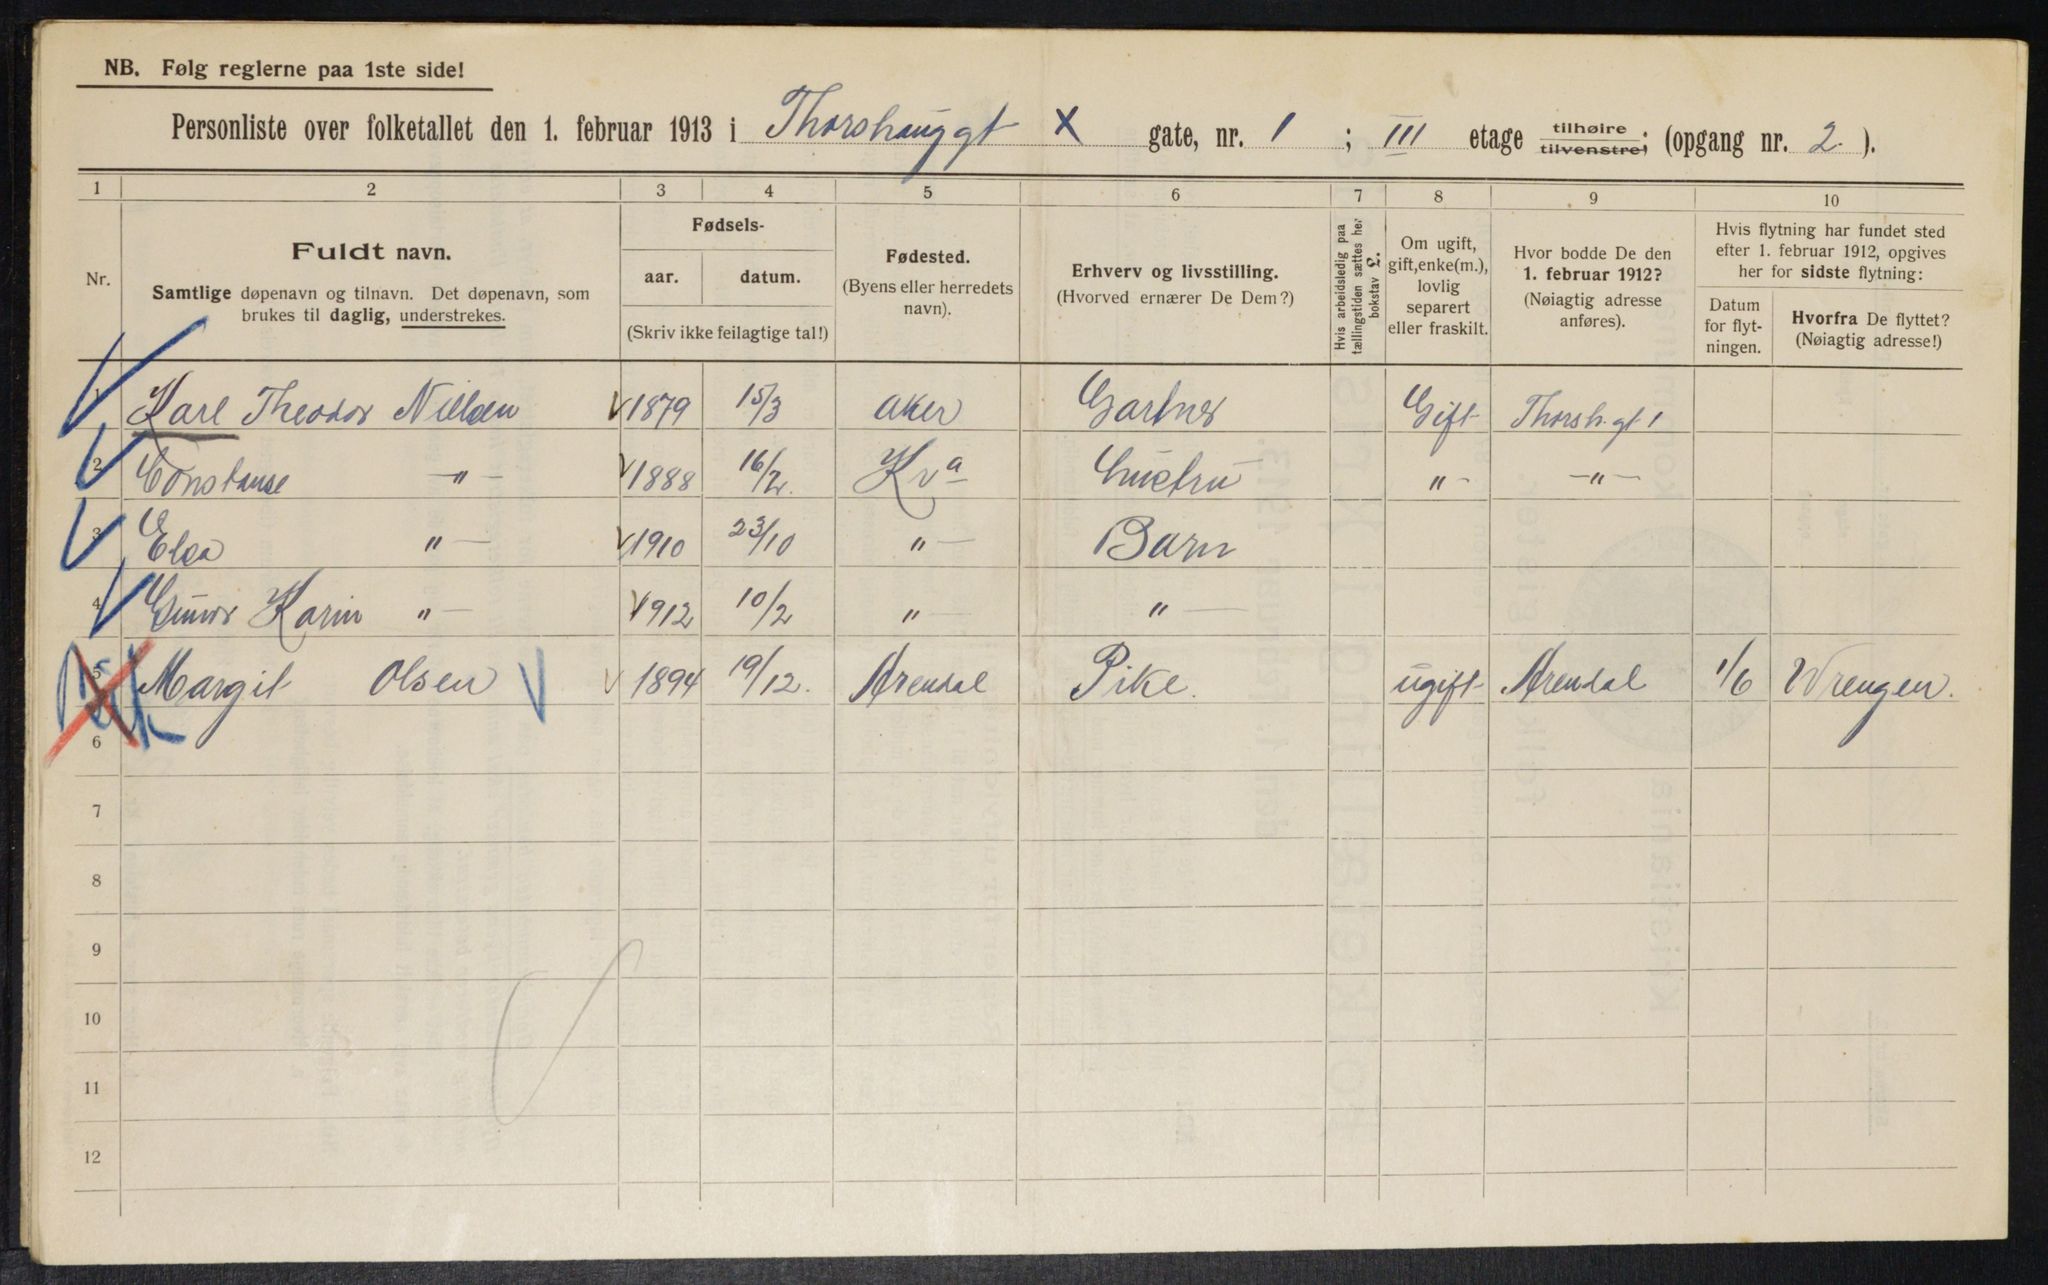 NB. Følg reglerne paa 1ste side!
Personliste over folketallet den 1. februar 1913 i Thorshauggt X gate, nr. 1 ; III etage tilhøire tilvenstre; (opgang nr. 2. ).
1 2 3 4 5 6 7 8 9 10
Nr.
Fuldt navn.
Samtlige døpenavn og tilnavn. Det døpenavn, som
brukes til daglig, understrekes.
Fødsels-
aar. datum.
(Skriv ikke feilagtige tal!)
Fødested.
(Byens eller herredets
navn).
Erhverv og livsstilling.
(Hvorved ernærer De Dem?)
Hvis arbeidsledig paa
tællingstiden sættes her
bokstav L.
Om ugift,
gift, enke(m.),
lovlig
separert
eller fraskilt.
Hvor bodde De den
1. februar 1912?
(Nøiagtig adresse
anføres).
Hvis flytning har fundet sted
efter 1. februar 1912, opgives
her for sidste flytning:
Datum
for flyt-
ningen.
Hvorfra De flyttet?
(Nøiagtig adresse!)
1 Karl Theodor Nielsen 1879 15/3 Aker Gartner Gift Thorsh.gt 1
2 Constanse " 1888 16/2. Kra Hustru " "
3 Elsa " 1910 23/10 " Barn
4 Karin " 1912 10/2 " "
5 Margit Olsen 1894 19/12. Arendal Pike. ugift Arendal 1/6 Wrengen.
6
7
8
9
10
11
12